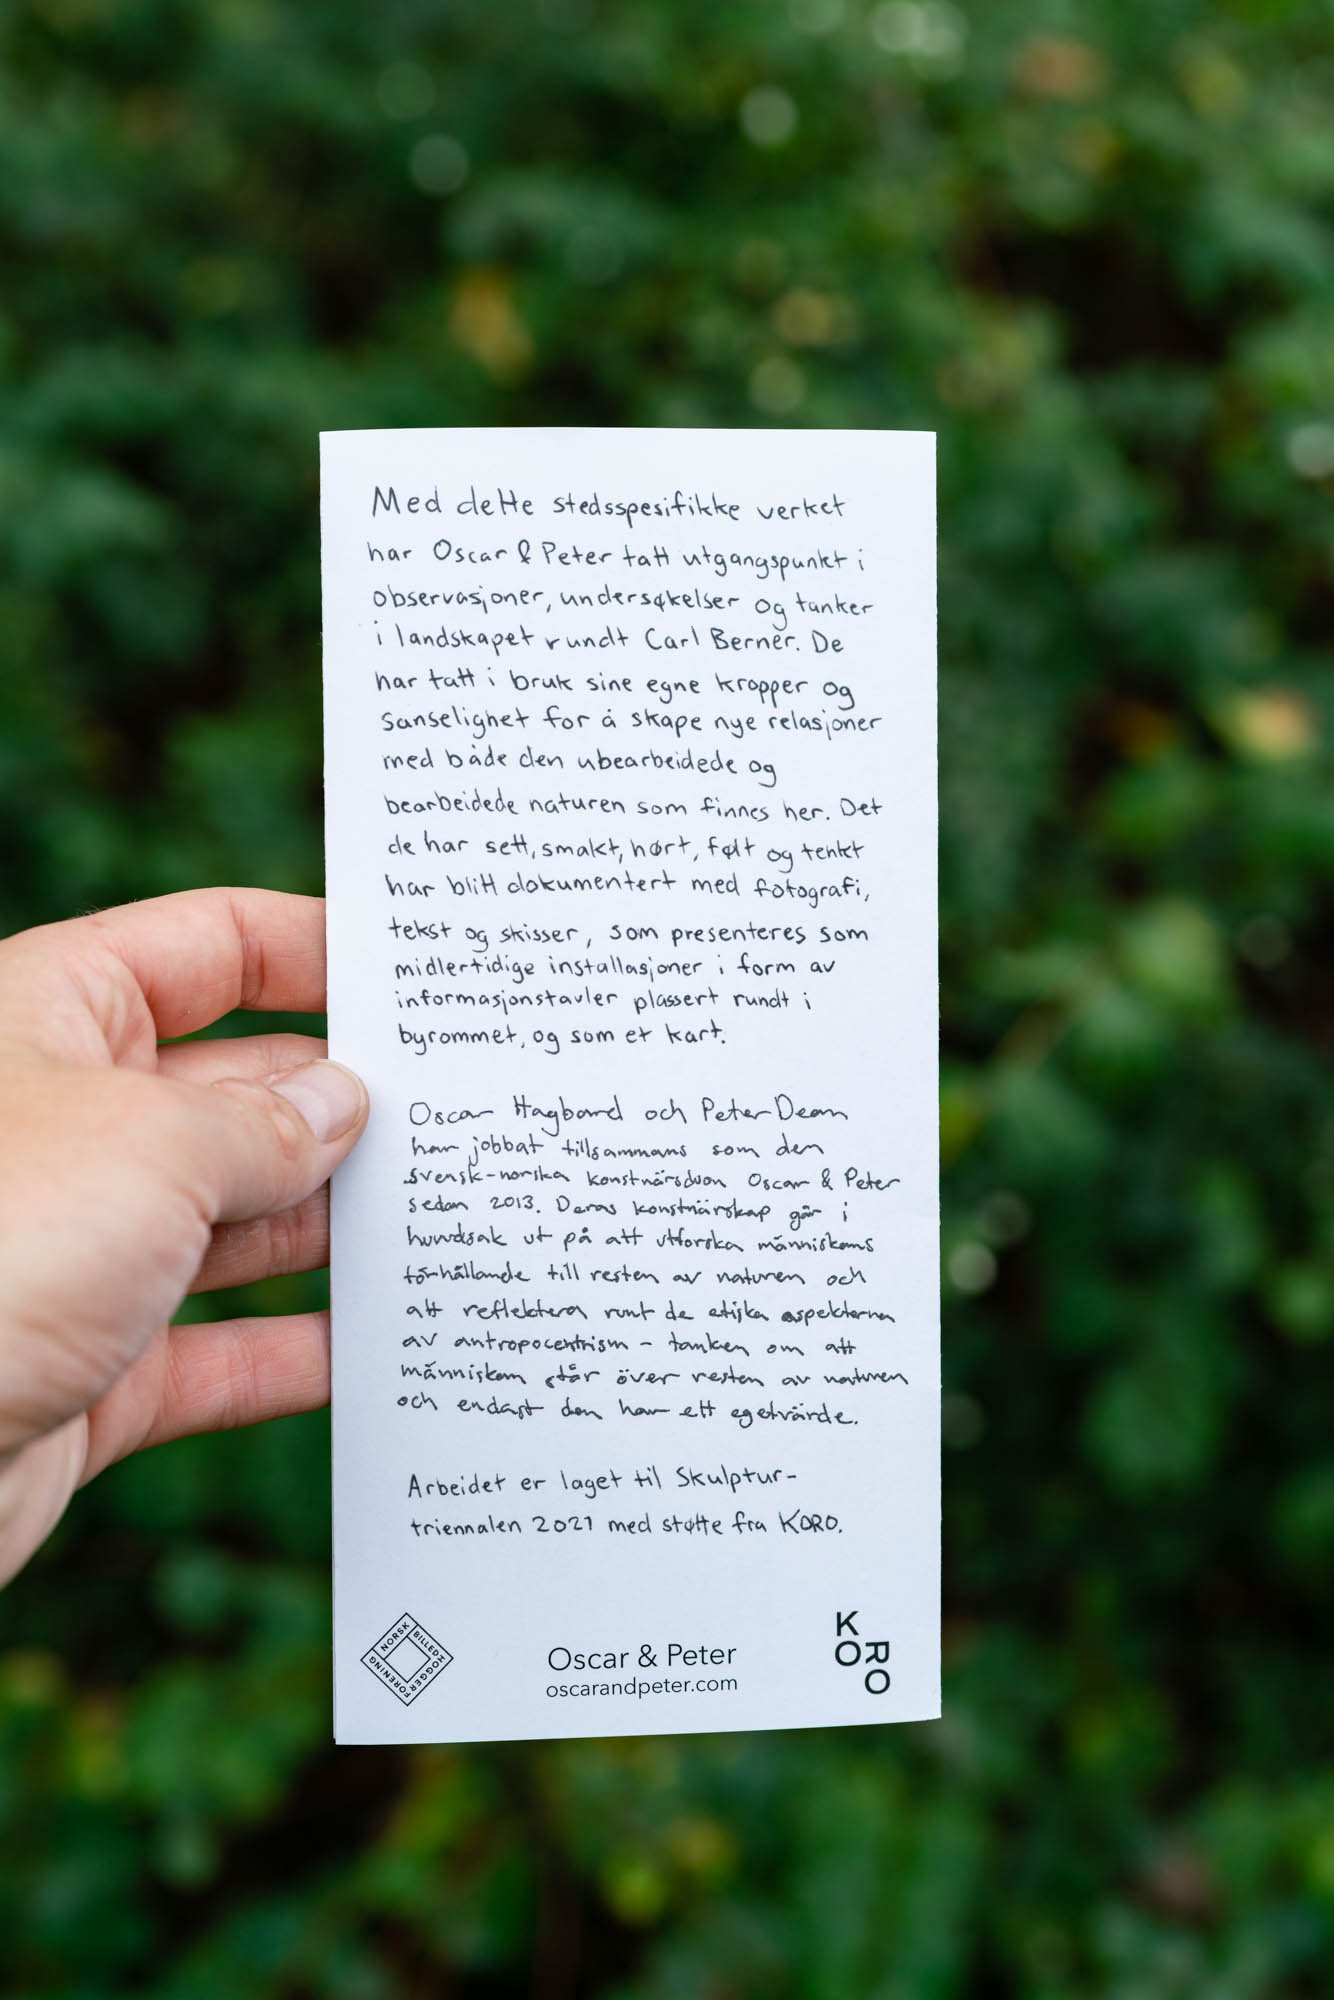 Med dette stedsspesifikke verket
har Oscar & Peter tatt utgangspunkt i
observasjoner, undersøkelser og tanker
i landskapet rundt Carl Berner. De
har tatt i bruk sine egne kropper og
sanselighet for å skape nye relasjoner
med både den ubearbeidede og
bearbeidede naturen som finnes her. Det
de har sett, smakt, hørt, følt og tenkt
har blitt dokumentert med fotografi,
tekst og skisser, som presenteres som
midlertidige installasjoner i form av
informasjonstavler plassert rundt i
byrommet, og som et kart.
Oscar Hagbard och Peter Dean
har jobbat tillsammans som den
svensk-norska konstnärsduon Oscar & Peter
sedan 2013. Deras konstnärskap går i
huvudsak ut på att utforska människans
förhållande till resten av naturen och
att reflektera runt de etiska aspekterna
av antropocentrism – tanken om att
människan står över resten av naturen
och endast den har ett egetvärde.
Arbeidet er laget til Skulptur-
triennalen 2021 med støtte fra KORO.
NORSK
BILLEDHOGGER
FORENING
Oscar & Peter
oscarandpeter.com
KO
RO